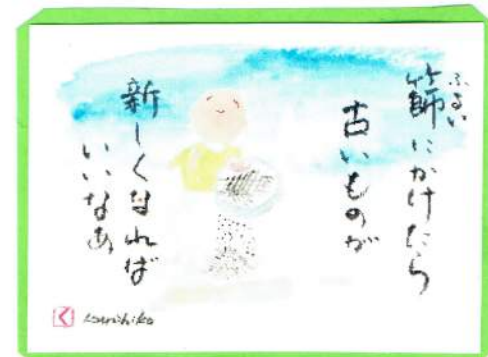 ふるい
篩にかけたら
古いものが
新しくなれば
いいなあ
く kunihiko